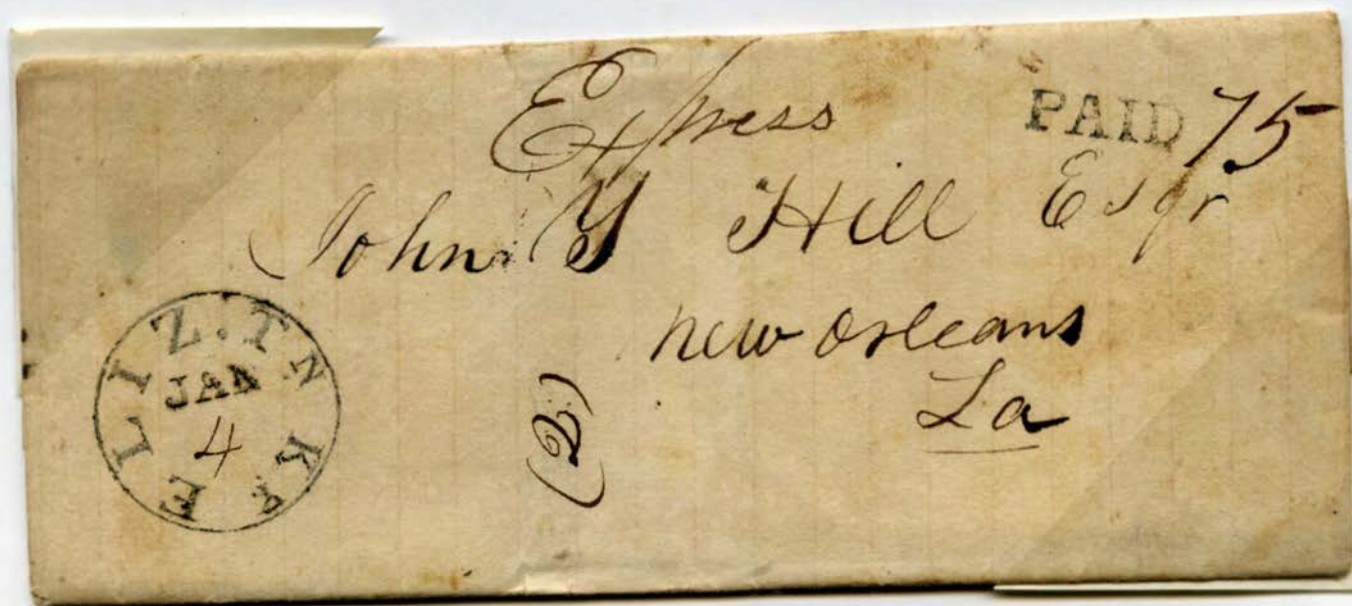 Express
PAID 75
John Y Hill Esqr
New Orleans
La
(2)
ELIZ. TN KY
JAN
4